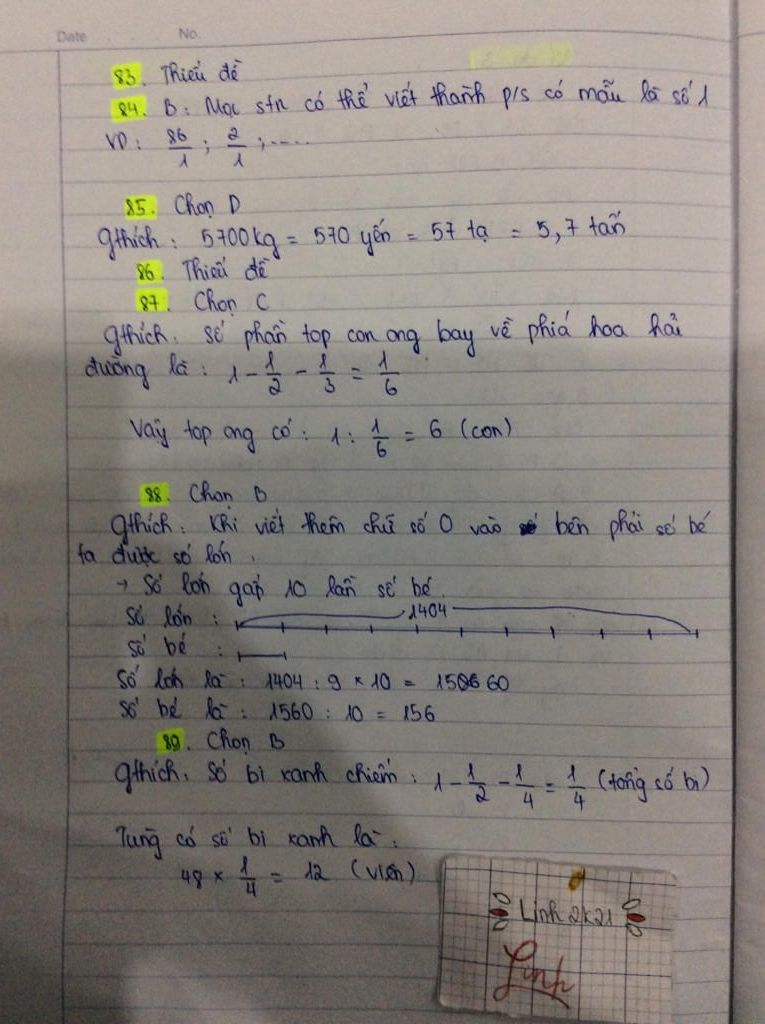 Date No.
83. Thiếu đề
84. B: Mọi stn có thể viết thành p/s có mẫu là số 1
VD: 86/1 ; 2/1 ; ....
85. Chọn D
Gthích: 5700kg = 570 yến = 57 tạ = 5,7 tấn
86. Thiếu đề
87. Chọn C
Gthích. Số phần top con ong bay về phiá hoa hải
đường là: 1 - 1/2 - 1/3 = 1/6
Vậy top ong có: 1 : 1/6 = 6 (con)
88. Chọn B
Gthích: Khi viết thêm chữ số 0 vào bên phải số bé
ta được số lớn.
→ Số lớn gấp 10 lần số bé.
1404
Số lớn :
Số bé :
Số lớn là : 1404 : 9 × 10 = 1560
Số bé là : 1560 : 10 = 156
89. Chọn B
Gthích. Số bi xanh chiếm : 1 - 1/2 - 1/4 = 1/4 (tổng số bi)
Tùng có số bi xanh là:
48 × 1/4 = 12 (viên)
Linh 2k21
Linh